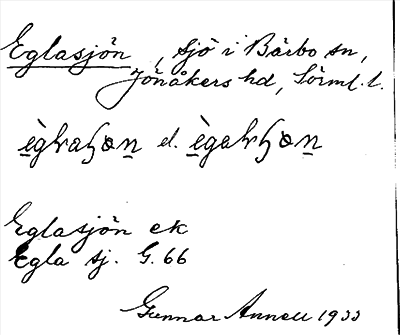 Eglasjön, sjö i Bärbo sn,
Jönåkers hd, Sörml. l.
èglraɧɷn el. ègalrɧɷn
Eglasjön ek
Egla sj. G. 66
Gunnar Annell 1933